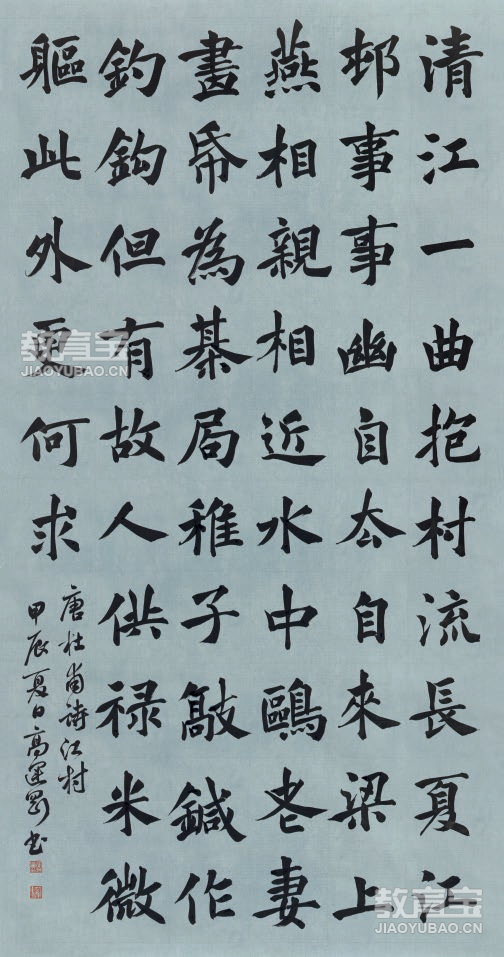 清江一曲抱村流長夏江
邨事事幽自厺自來梁上
燕相親相近水中鷗老妻
畫帋為棊局稚子敲鍼作
釣鈎但有故人供禄米微
軀此外更何求
唐杜甫詩江村
甲辰夏日高運剛书
教育宝
JIAOYUBAO.CN
教育宝
JIAOYUBAO.CN
教育宝
JIAOYUBAO.CN